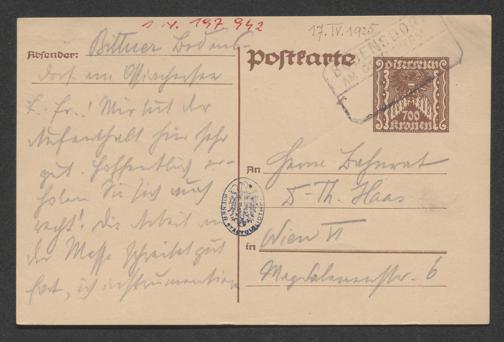 J.N. 197 942
17.IV.1925
Absender: Bittner Bodens-
dorf am Ossiachersee
L. Fr.! Mir tut der
Aufenthalt hier sehr
gut. Hoffentlich er-
holen Sie sich auch
recht! Die Arbeit an
der Messe schreitet gut
fort, ich instrumentiere
Postkarte
BODENSDORF
AM
ÖSTERREICH
700
KRONEN
An
Herrn Bahnrat
Dr Th. Haas
in Wien VI
Magdalenenstr. 6